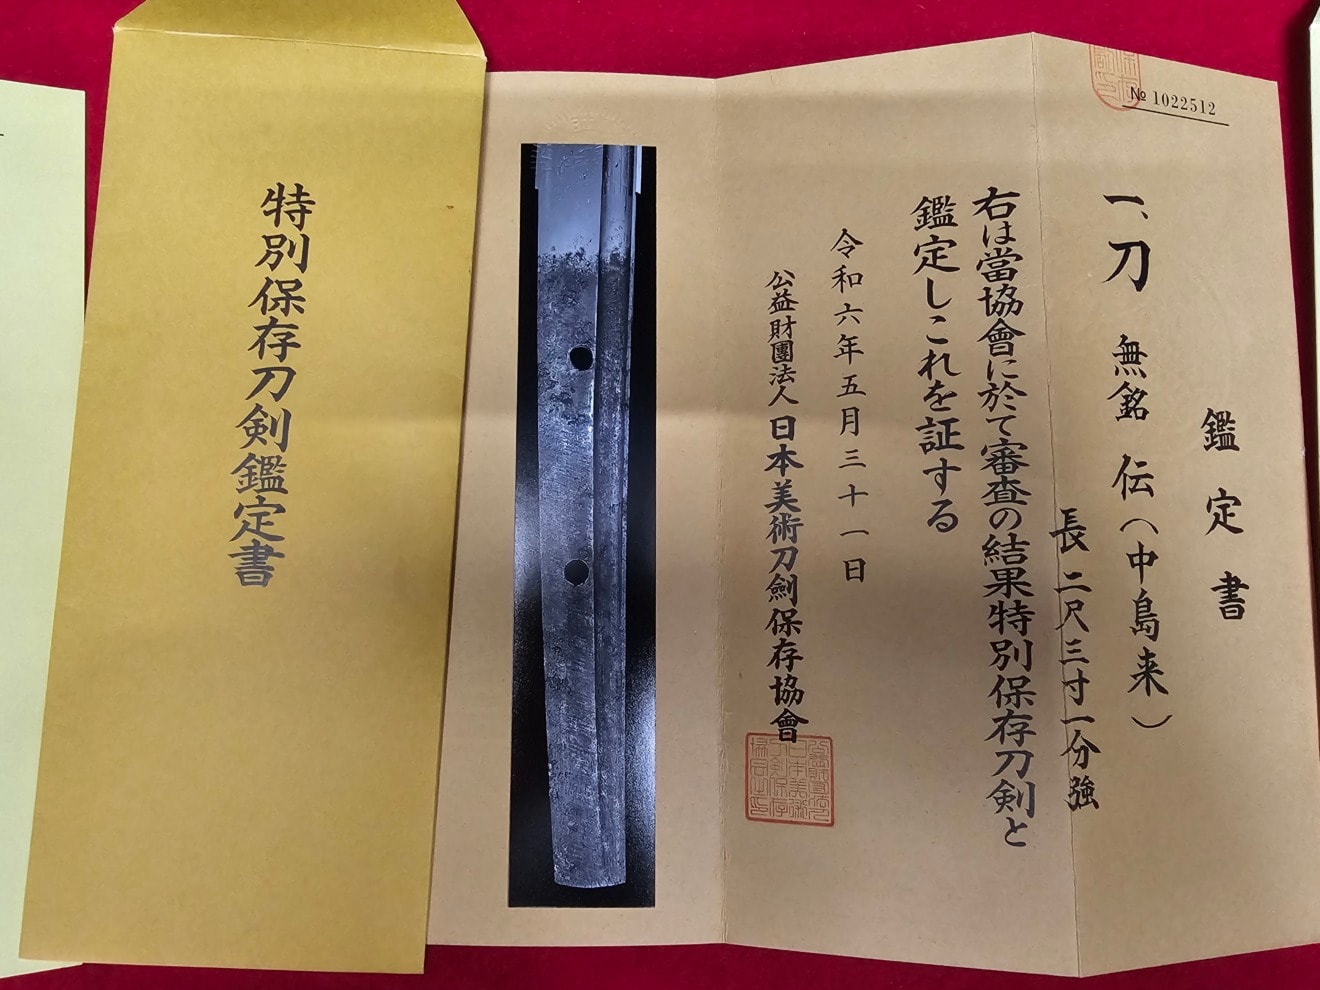 特別保存刀剣鑑定書
№ 1022512
鑑定書
一、刀 無銘 伝(中島来)
長 二尺三寸一分強
右は當協會に於て審査の結果特別保存刀剣と
鑑定しこれを証する
令和六年五月三十一日
公益財團法人 日本美術刀劍保存協會